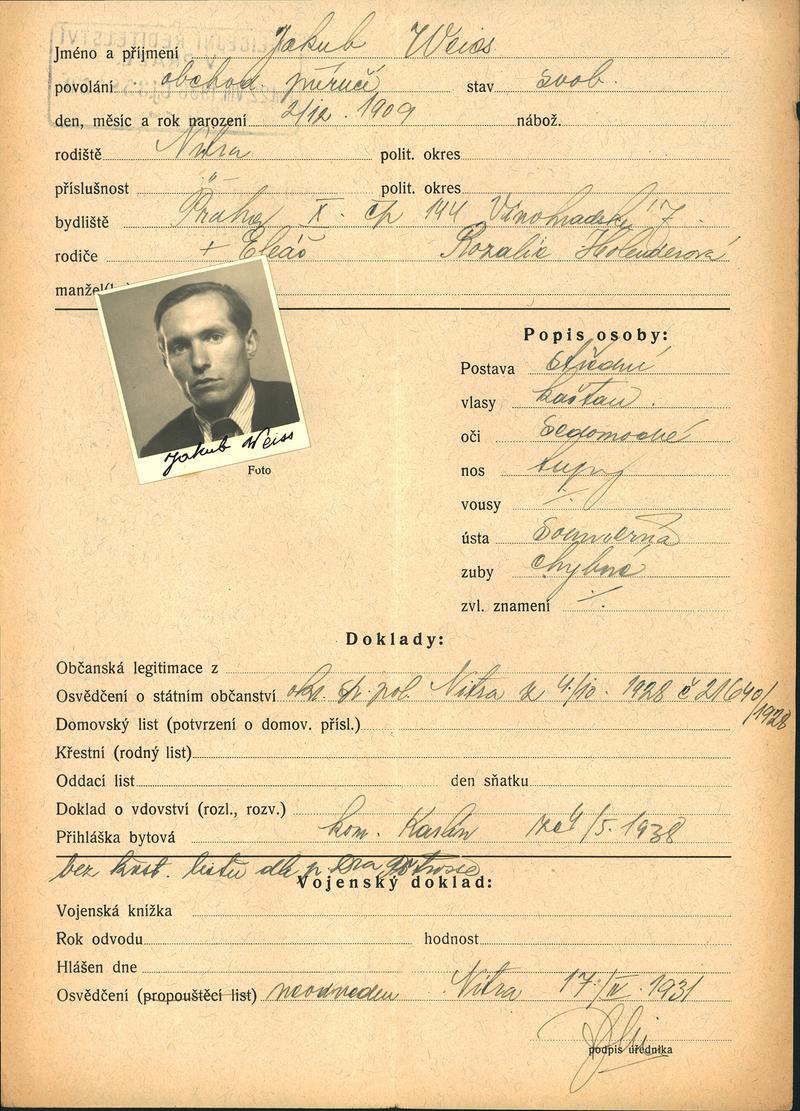 Jméno a příjmení Jakub Weiss
povolání obchod. příručí stav svob.
den, měsíc a rok narození 2/12. 1909 nábož.
rodiště Nitra polit. okres
příslušnost -"- polit. okres
bydliště Praha X. čp 144 Vinohradská 7.
rodiče + Eliáš Rozalie Holenderová
manžel(
Jakub Weiss
Foto
Popis osoby:
Postava střední
vlasy kaštan.
oči šedomodré
nos tupý
vousy ./.
ústa souměrná
zuby chybné
zvl. znamení ./.
Doklady:
Občanská legitimace z
Osvědčení o státním občanství okr. pol. Nitra z 4/10. 1928 č 21640/1928
Domovský list (potvrzení o domov. přísl.)
Křestní (rodný list)
Oddací list den sňatku
Doklad o vdovství (rozl., rozv.)
Přihláška bytová kom. Karlín 4/5. 1938
bez křest. listu dle p.
Vojenský doklad:
Vojenská knížka
Rok odvodu hodnost
Hlášen dne
Osvědčení (propouštěcí list) neodveden Nitra 17./IV. 1931
podpis úředníka